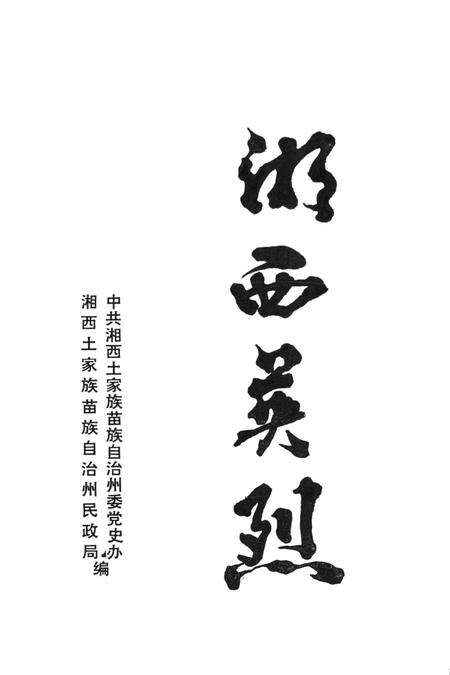 湘西英烈
中共湘西土家族苗族自治州委党史办
湘西土家族苗族自治州民政局
编